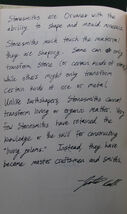 Stonesmiths are Orumen with the
ability to shape and mould minerals
Stonesmiths must touch the material
they are shaping. Some can only
transform stone (or certain kinds of stone)
while others might only transform
certain kinds of ore or metal.
Unlike Earthshapers, Stonesmiths cannot
transform living or organic matter. Very
few Stonesmiths have retained the
knowledge or the skill for constructing
"living golems." Instead, they have
become master craftsmen and smiths.